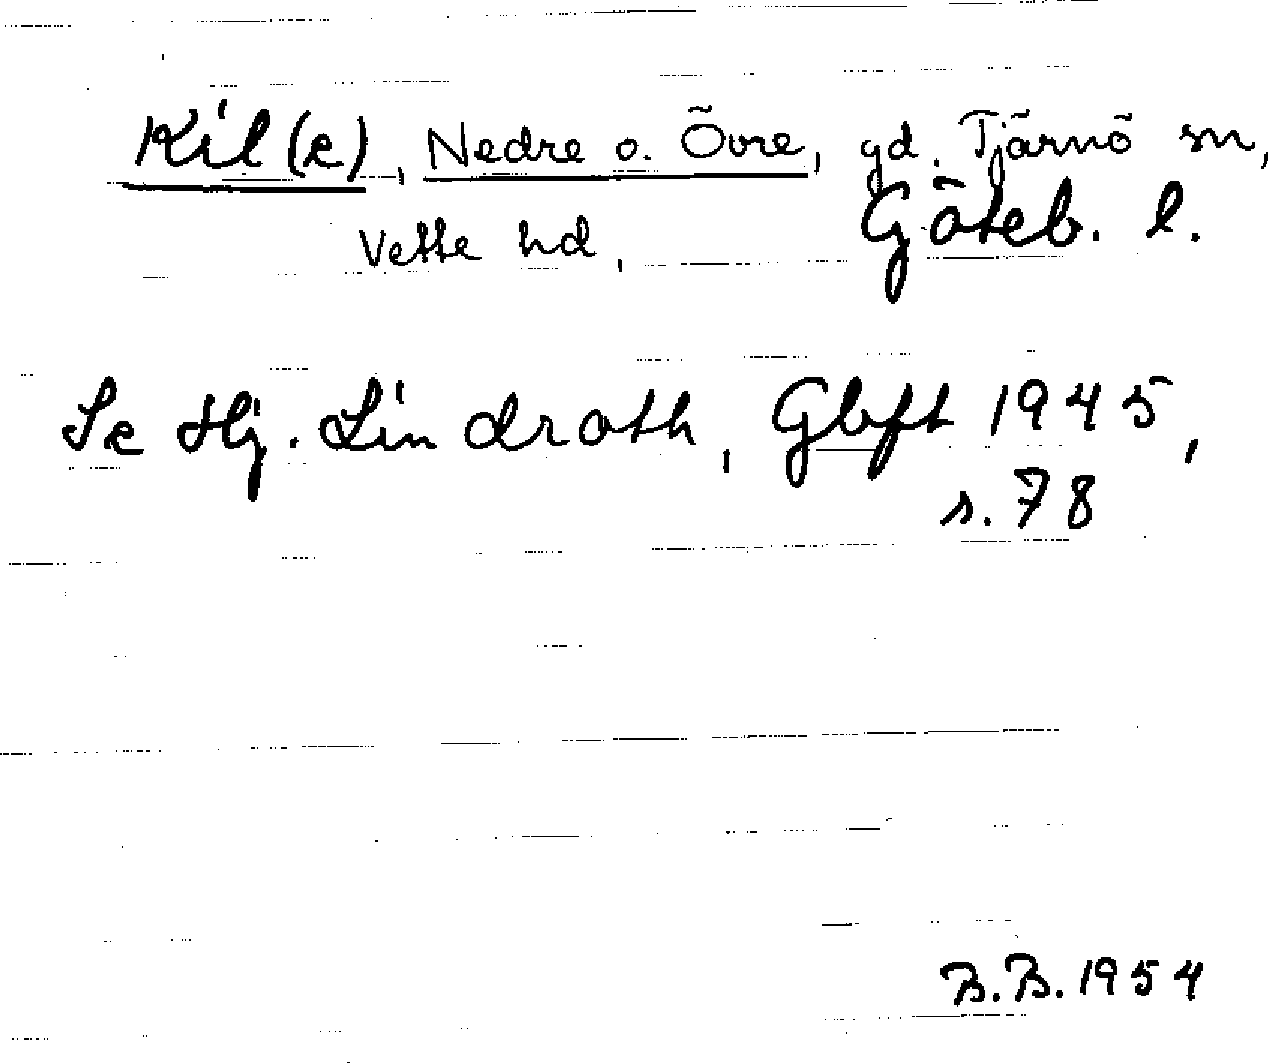 Kil(e), Nedre o. Övre, gd. Tjärnö sn,
Vette hd, Göteb. l.
Se Hj. Lindroth, Gbft 1945,
s. 78
B.B. 1954